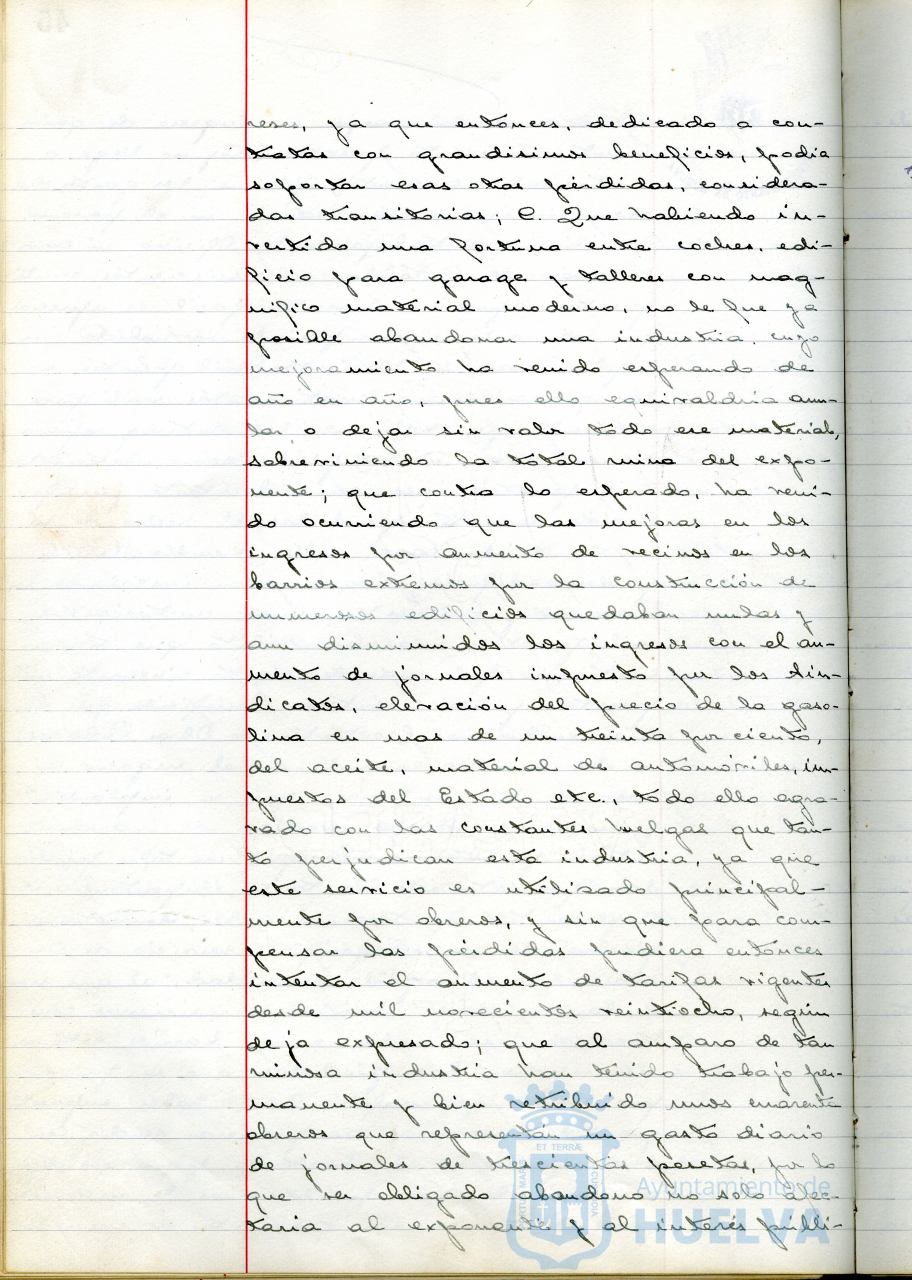 reses, ya que entonces, dedicado a con-
tratas con grandisimos beneficios, podia
soportar esas otras pérdidas, considera-
das transitorias; C. Que habiendo in-
vertido una fortuna entre coches, edi-
ficio para garage y talleres con mag-
nifico material moderno, no le fue ya
posible abandonar una industria, cuyo
mejoramiento ha venido esperando de
año en año, pues ello equivaldria anu-
lar o dejar sin valor todo ese material,
sobreviniendo la total ruina del expo-
nente; que contra lo esperado, ha veni-
do ocurriendo que las mejoras en los
ingresos por aumento de vecinos en los
barrios extremos por la construcción de
numerosos edificios quedaban nulas y
aun disminuidos los ingresos con el au-
mento de jornales impuesto por los Sin-
dicatos, elevación del precio de la gaso-
lina en mas de un treinta por ciento,
del aceite, material de automóviles, im-
puestos del Estado etc., todo ello agra-
vado con las constantes huelgas que tan-
to perjudican esta industria, ya que
este servicio es utilizado principal-
mente por obreros, y sin que para com-
pensar las pérdidas pudiera entonces
intentar el aumento de tarifas vigentes
desde mil novecientos veintiocho, según
deja expresado; que al amparo de tan
ruinosa industria han tenido trabajo per-
manente y bien retribuido unos cuarenta
obreros que representan un gasto diario
de jornales de trescientas pesetas, por lo
que su obligado abandono no solo afec-
taria al exponente y al interés públi-
ET TERRÆ
Ayuntamiento de
HUELVA